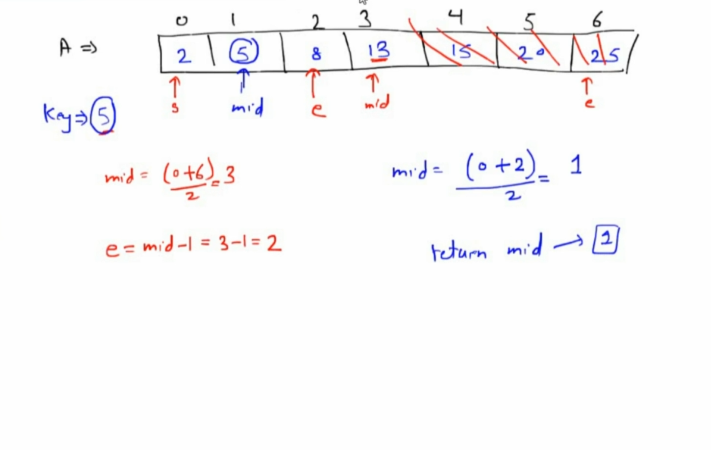 0 1 2 3 4 5 6
A ⇒ 2 5 8 13 15 20 25
s mid e mid e
Key ⇒ 5
mid = (0+6)/2 = 3
mid = (0+2)/2 = 1
e = mid-1 = 3-1 = 2
return mid → 1